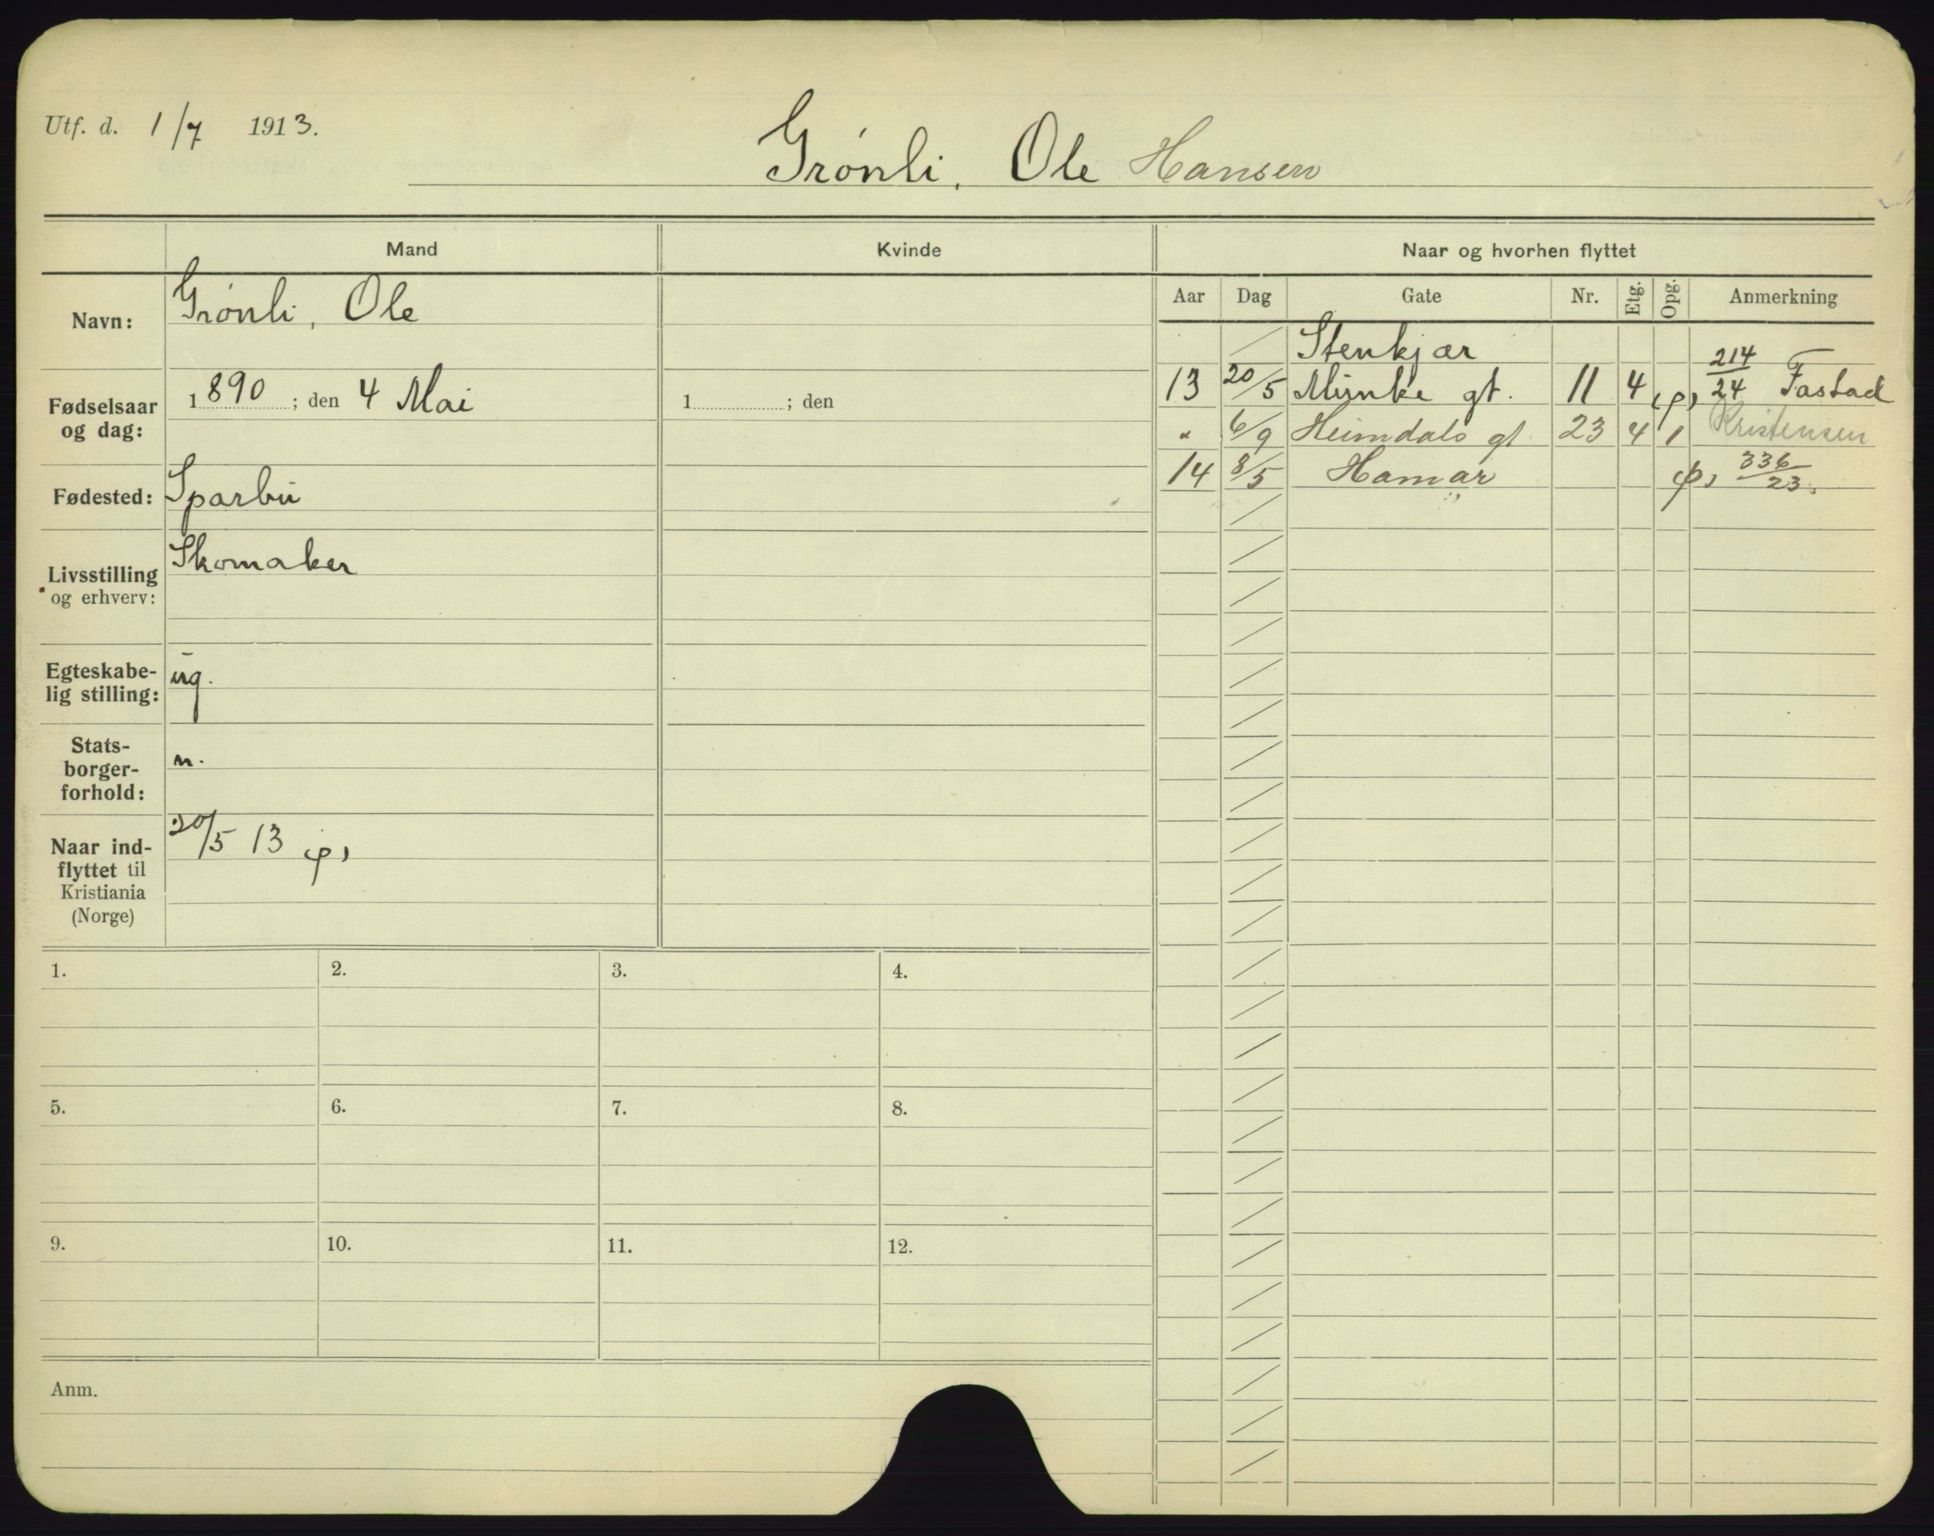 Utf. d. 1/7 1913.
Grønli, Ole Hansen
Mand
Kvinde
Naar og hvorhen flyttet
Navn: Grønli, Ole
Fødselsaar og dag: 1890; den 4 Mai
1 ; den
Fødested: Sparbu
Livsstilling og erhverv: Skomaker
Egteskabe-
lig stilling: ug.
Stats-
borger-
forhold: n.
Naar ind-
flyttet til
Kristiania
(Norge) 20/5 13
Aar Dag Gate Nr. Etg. Opg. Anmerkning
Stenkjær
13 20/5 Munke gt. 11 4 214/24 Fastad
" 6/9 Heimdals gt. 23 4 1 Kristensen
14 8/5 Hamar 336/23.
1. 2. 3. 4.
5. 6. 7. 8.
9. 10. 11. 12.
Anm.